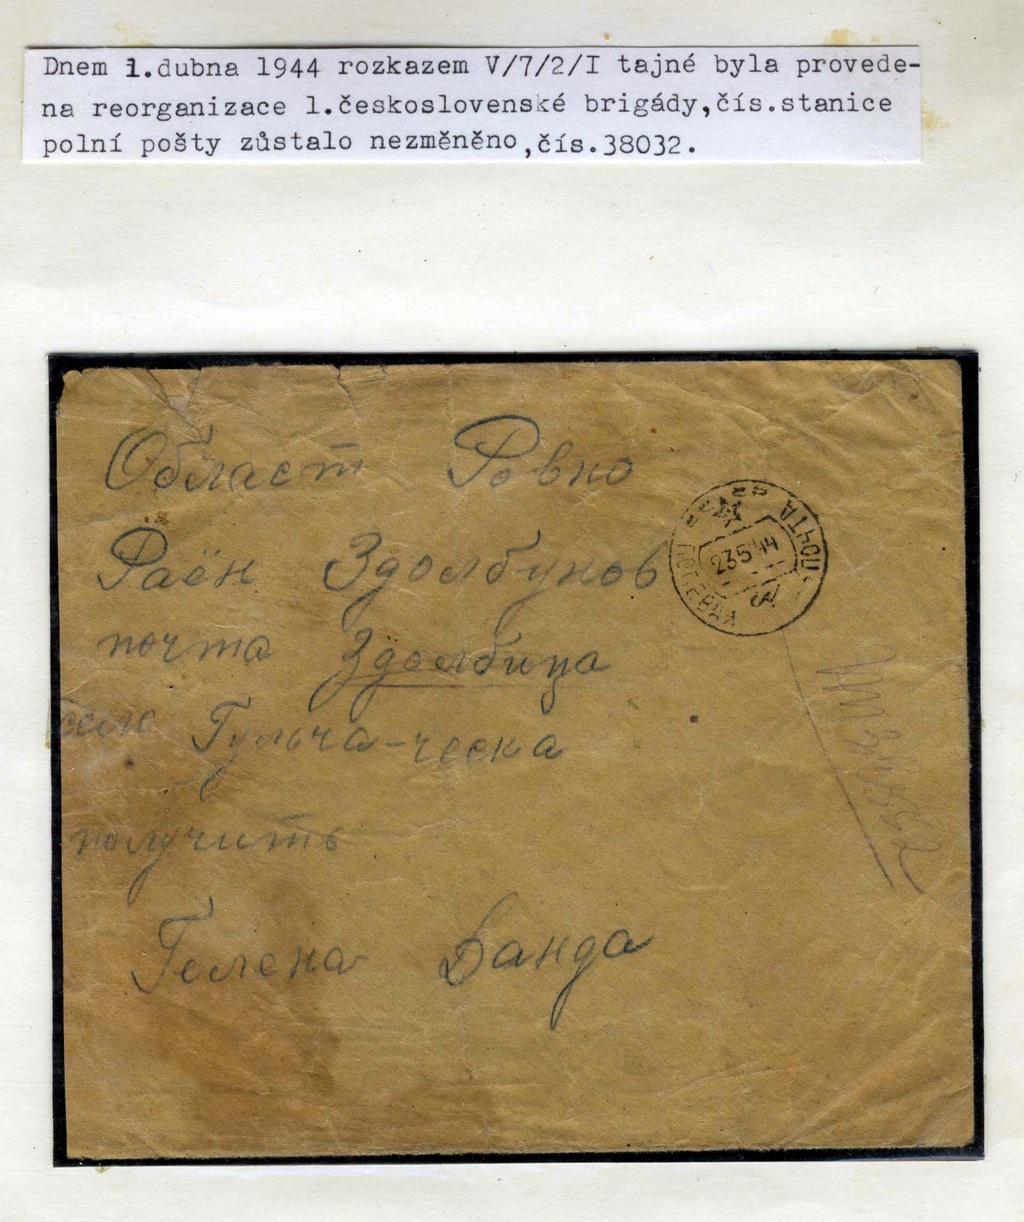 Dnem 1.dubna 1944 rozkazem V/7/2/I tajné byla provede-
na reorganizace 1.československé brigády,čís.stanice
polní pošty zůstalo nezměněno,čís.38032.
Област Ровно
Раён Здолбунов
почта Здолбица
село Гульча-ческа
получить
Гелена Ванда
ПОЧТА
23 5 44
ПОЛЕВАЯ